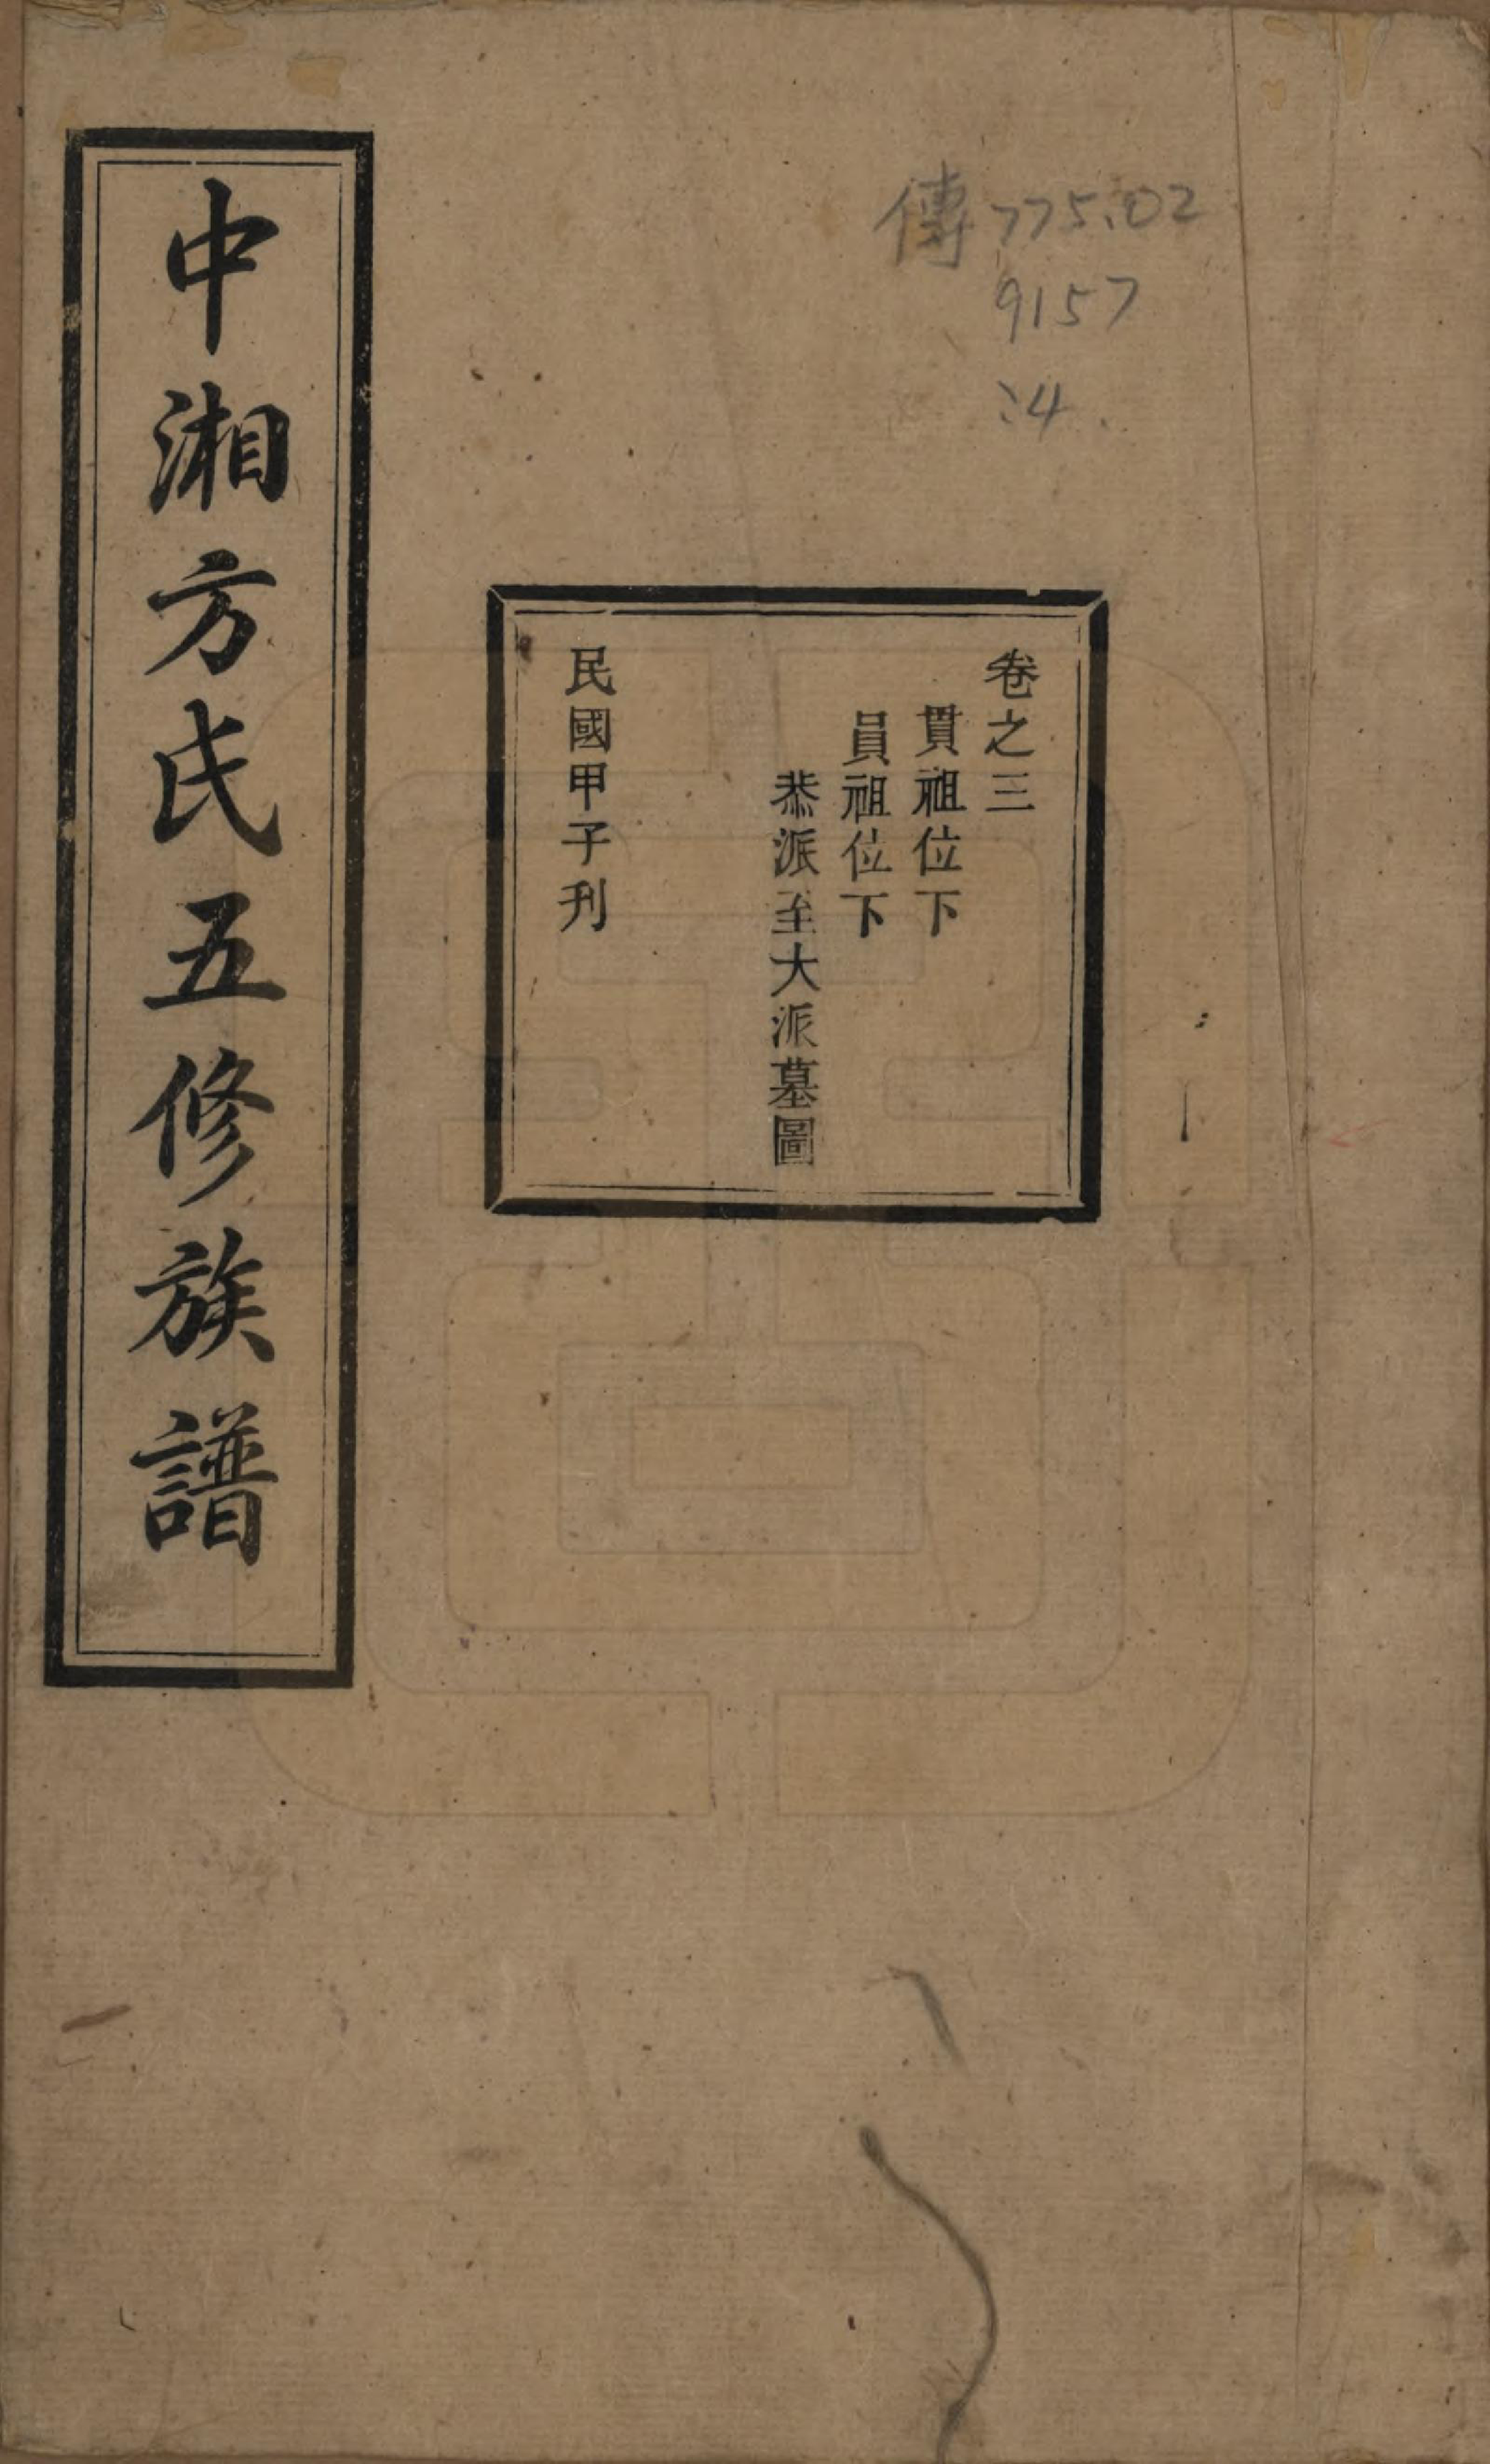 傳775.02
9157
:4
卷之三
貫祖位下
員祖位下
恭派至大派墓圖
民國甲子刋
中湘方氏五修族譜